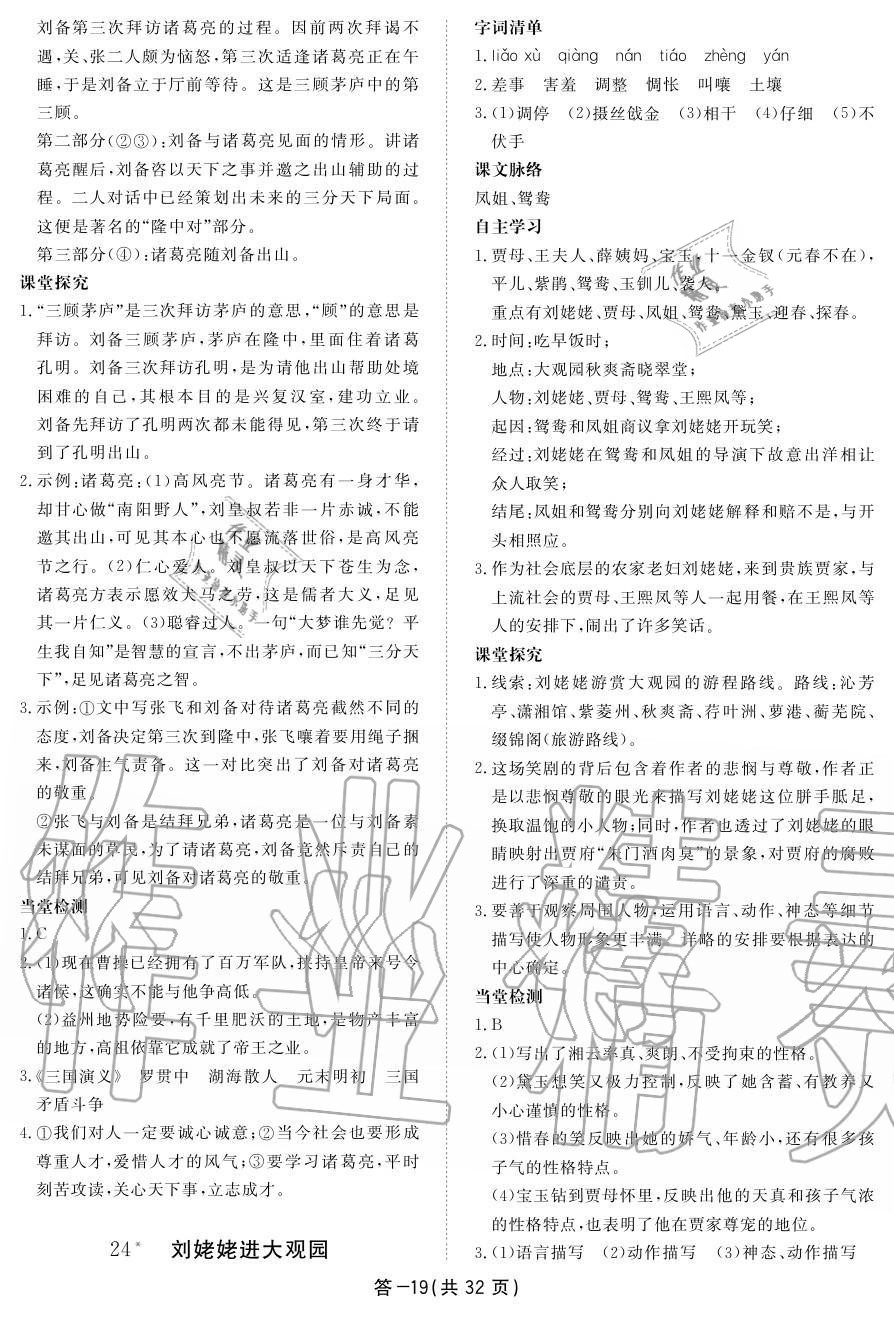 刘备第三次拜访诸葛亮的过程。因前两次拜谒不
遇,关、张二人颇为恼怒,第三次适逢诸葛亮正在午
睡,于是刘备立于厅前等待。这是三顾茅庐中的第
三顾。
第二部分(②③):刘备与诸葛亮见面的情形。讲诸
葛亮醒后,刘备咨以天下之事并邀之出山辅助的过
程。二人对话中已经策划出未来的三分天下局面。
这便是著名的“隆中对”部分。
第三部分(④):诸葛亮随刘备出山。
课堂探究
1.“三顾茅庐”是三次拜访茅庐的意思,“顾”的意思是
拜访。刘备三顾茅庐,茅庐在隆中,里面住着诸葛
孔明。刘备三次拜访孔明,是为请他出山帮助处境
困难的自己,其根本目的是兴复汉室,建功立业。
刘备先拜访了孔明两次都未能得见,第三次终于请
到了孔明出山。
2.示例:诸葛亮:(1)高风亮节。诸葛亮有一身才华,
却甘心做“南阳野人”,刘皇叔若非一片赤诚,不能
邀其出山,可见其本心也不愿流落世俗,是高风亮
节之行。(2)仁心爱人。刘皇叔以天下苍生为念,
诸葛亮方表示愿效犬马之劳,这是儒者大义,足见
其一片仁义。(3)聪睿过人。一句“大梦谁先觉?平
生我自知”是智慧的宣言,不出茅庐,而已知“三分天
下”,足见诸葛亮之智。
3.示例:①文中写张飞和刘备对待诸葛亮截然不同的
态度,刘备决定第三次到隆中,张飞嚷着要用绳子捆
来,刘备生气责备。这一对比突出了刘备对诸葛亮
的敬重。
②张飞与刘备是结拜兄弟,诸葛亮是一位与刘备素
未谋面的草民,为了请诸葛亮,刘备竟然斥责自己的
结拜兄弟,可见刘备对诸葛亮的敬重。
当堂检测
1.C
2.(1)现在曹操已经拥有了百万军队,挟持皇帝来号令
诸侯,这确实不能与他争高低。
(2)益州地势险要,有千里肥沃的土地,是物产丰富
的地方,高祖依靠它成就了帝王之业。
3.《三国演义》 罗贯中 湖海散人 元末明初 三国
矛盾斗争
4.①我们对人一定要诚心诚意;②当今社会也要形成
尊重人才,爱惜人才的风气;③要学习诸葛亮,平时
刻苦攻读,关心天下事,立志成才。
24* 刘姥姥进大观园
字词清单
1.liǎo xù qiàng nán tiáo zhèng yán
2.差事 害羞 调整 惆怅 叫嚷 土壤
3.(1)调停 (2)摄丝戗金 (3)相干 (4)仔细 (5)不
伏手
课文脉络
凤姐、鸳鸯
自主学习
1.贾母、王夫人、薛姨妈、宝玉,十一金钗(元春不在),
平儿、紫鹃、鸳鸯、玉钏儿、袭人。
重点有刘姥姥、贾母、凤姐、鸳鸯、黛玉、迎春、探春。
2.时间:吃早饭时;
地点:大观园秋爽斋晓翠堂;
人物:刘姥姥、贾母、鸳鸯、王熙凤等;
起因:鸳鸯和凤姐商议拿刘姥姥开玩笑;
经过:刘姥姥在鸳鸯和凤姐的导演下故意出洋相让
众人取笑;
结尾:凤姐和鸳鸯分别向刘姥姥解释和赔不是,与开
头相照应。
3.作为社会底层的农家老妇刘姥姥,来到贵族贾家,与
上流社会的贾母、王熙凤等人一起用餐,在王熙凤等
人的安排下,闹出了许多笑话。
课堂探究
1.线索:刘姥姥游赏大观园的游程路线。路线:沁芳
亭、潇湘馆、紫菱州、秋爽斋、荇叶洲、萝港、蘅芜院、
缀锦阁(旅游路线)。
2.这场笑剧的背后包含着作者的悲悯与尊敬,作者正
是以悲悯尊敬的眼光来描写刘姥姥这位胼手胝足,
换取温饱的小人物;同时,作者也透过了刘姥姥的眼
睛映射出贾府“朱门酒肉臭”的景象,对贾府的腐败
进行了深重的谴责。
3.要善于观察周围人物,运用语言、动作、神态等细节
描写使人物形象更丰满。详略的安排要根据表达的
中心确定。
当堂检测
1.B
2.(1)写出了湘云率真、爽朗、不受拘束的性格。
(2)黛玉想笑又极力控制,反映了她含蓄、有教养又
小心谨慎的性格。
(3)惜春的笑反映出她的娇气、年龄小,还有很多孩
子气的性格特点。
(4)宝玉钻到贾母怀里,反映出他的天真和孩子气浓
的性格特点,也表明了他在贾家尊宠的地位。
3.(1)语言描写 (2)动作描写 (3)神态、动作描写
答—19(共 32 页)